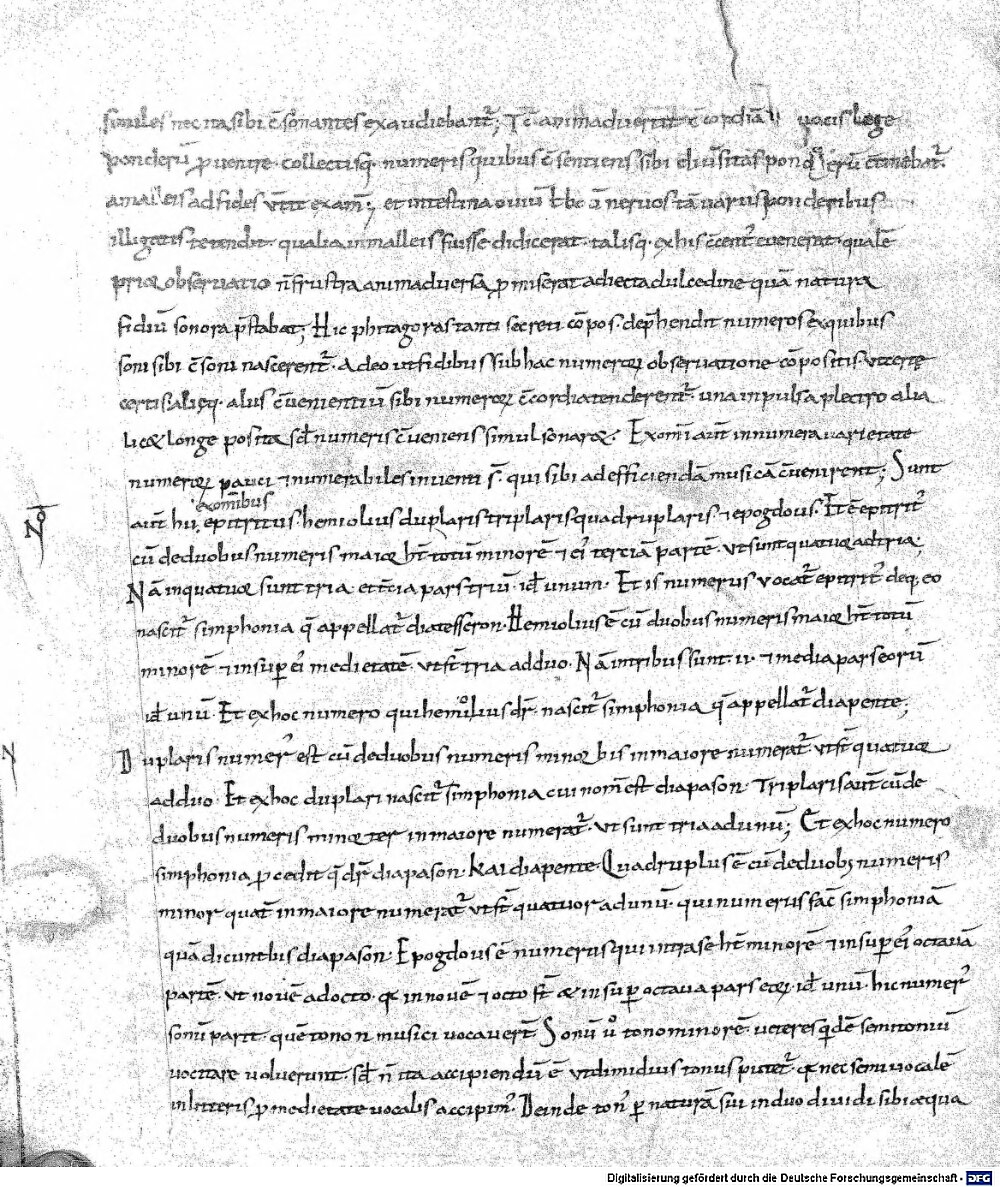 similes nec ita sibi c̄sonantes exaudiebant᷑; Tc̄ animadvertit c̄cordiā vocis lege
ponderū ꝓvenire. collectisq; numeris quibus c̄sentiens sibi diūsitas pon
a malleis ad fides v̄tit exam̄; et intestina oviū t̄ boū nervos tā variis ponderibus
illigatis tetendit. qualia in malleis fuisse didicerat. talisq; ex his c̄cent᷒ evenerat. qualē
priꝰ observatio n̄ frustra animadversa ꝓmiserat adiecta dulcedine quā natura
fidiū sonora p̄stabat; Hic phitagoras tanti secreti cōpos. dep̄hendit numeros ex quibus
soni sibi c̄soni nascerent᷑. Adeo ut fidibus sub hac numeroꝝ observatione cōpositis. v̄ certę
certis aliięq. aliis c̄venientiū sibi numeroꝝ c̄cordia tenderent᷑. una inpulsa plectro alia
licet longe posita. sꝫ numeris c̄veniens simul sonaret. Ex om̄i aūt innumera varietate
numeroꝝ pauci ⁊ numerabiles inventi s̄. qui sibi ad efficiendā musicā c̄venirent; Sunt
exom̄ibus
aūt hii, epitritus. hemiolius duplaris triplaris quadruplaris ⁊ epogdous. Et ē epitrit᷒
cū de duobus numeris maior ht̄ totū minorē ⁊ ei᷒ terciā partē. ut sunt quatuor ad tria;
Nā in quatuor sunt tria. et t̄cia pars triū. id ē unum. Et is numerus vocat᷑ epitrit᷒ deq; eo
nascit᷑ simphonia q̄ appellat᷑ diatesseron. Hemiolius ē cū duobus numeris maior ht̄ totū
minorē ⁊ insup̄ ei᷒ medietatē. ut s̄t tria ad duo. Nā in tribus sunt .ii. ⁊ media pars eorū
id ē unū. Et ex hoc numero qui hemiolius dr̄. nascit᷑ simphonia q̄ appellat᷑ diapente;
Duplaris numer᷒ est cū de duobus numeris minor bis in maiore numerat᷑. ut s̄t quatuor
ad duo. Et ex hoc duplari nascit᷑ simphonia cui nom̄ est diapason. Triplaris aūt cū de
duobus numeris minor ter in maiore numerat᷑. ut sunt tria ad unū; Et ex hoc numero
simphonia ꝓcedit q̄ dr̄ diapason. Kai diapente. Quadruplus ē cū de duobꝫ numeris
minor quat̄ in maiore numerat᷑. ut s̄t quatuor ad unū. qui numerus fac̄ simphoniā
quā dicunt bis diapason. Epogdous ē numerus qui intra se ht̄ minorē ⁊ insup̄ ei᷒ octavā
partē. ut novē ad octo. q̄ in novē ⁊ octo s̄t et insup̄ octava pars eoꝝ. id ē unū. hic numer᷒
sonū parit. quē tonon musici vocavert̄. Sonū v̊ tono minorē. veteres q̄dē semitoniū
vocitare voluerunt. sꝫ n̄ ita accipiendū ē ut dimidius tonus putet᷑. q̄ nec semivocalē
in litteris ꝓ medietate vocalis accipim᷒. Deinde ton᷒ p̱ naturā sui in duo dividi sibi æqua